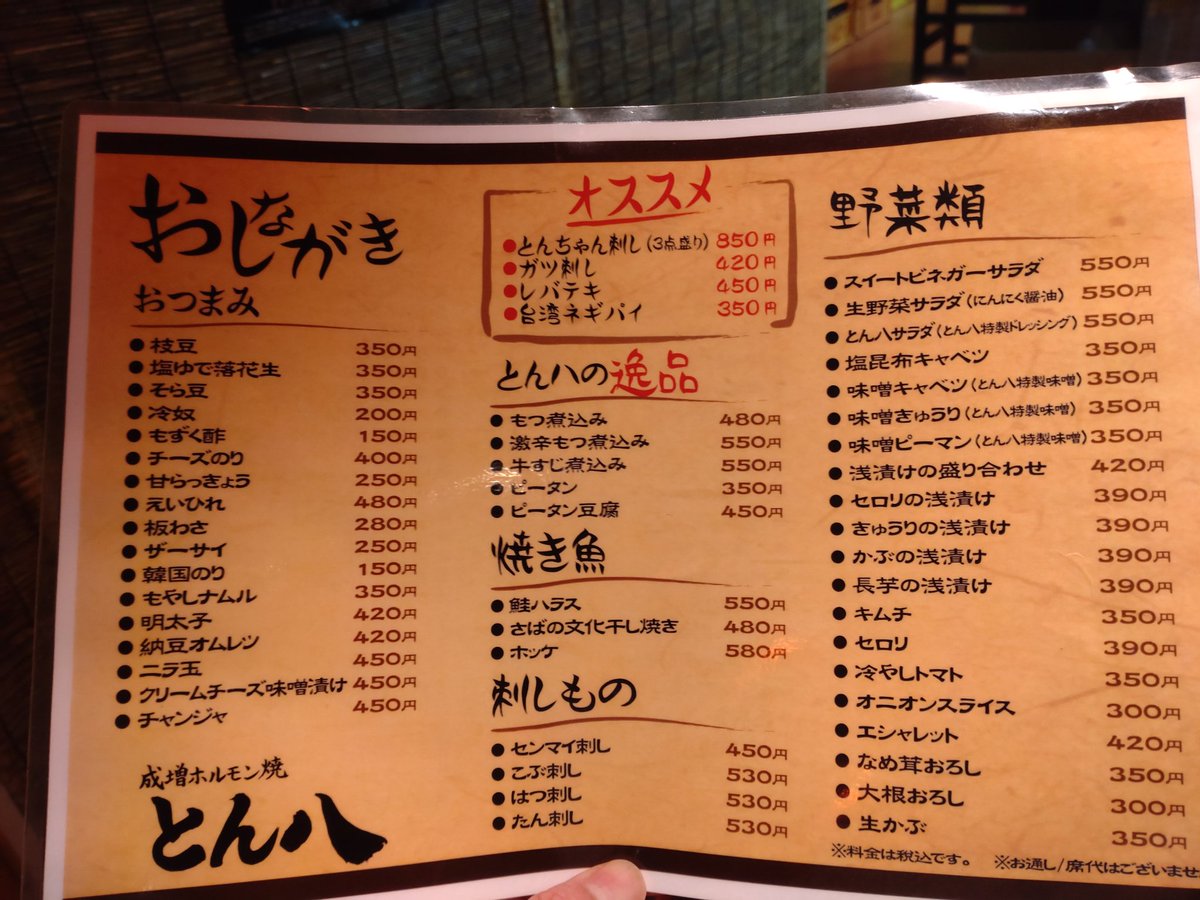 おしながき
おつまみ
●枝豆 350円
●塩ゆで落花生 350円
●そら豆 350円
●冷奴 200円
●もずく酢 150円
●チーズのり 400円
●甘らっきょう 250円
●えいひれ 480円
●板わさ 280円
●ザーサイ 250円
●韓国のり 150円
●もやしナムル 350円
●明太子 420円
●納豆オムレツ 420円
●ニラ玉 450円
●クリームチーズ味噌漬け 450円
●チャンジャ 450円
成増ホルモン焼
とん八
オススメ
●とんちゃん刺し(3点盛り) 850円
●ガツ刺し 420円
●レバテキ 450円
●台湾ネギパイ 350円
とん八の逸品
●もつ煮込み 480円
●激辛もつ煮込み 550円
●牛すじ煮込み 550円
●ピータン 350円
●ピータン豆腐 450円
焼き魚
●鮭ハラス 550円
●さばの文化干し焼き 480円
●ホッケ 580円
刺しもの
●センマイ刺し 450円
●こぶ刺し 530円
●はつ刺し 530円
●たん刺し 530円
野菜類
●スイートビネガーサラダ 550円
●生野菜サラダ(にんにく醤油) 550円
●とん八サラダ(とん八特製ドレッシング) 550円
●塩昆布キャベツ 350円
●味噌キャベツ(とん八特製味噌) 350円
●味噌きゅうり(とん八特製味噌) 350円
●味噌ピーマン(とん八特製味噌) 350円
●浅漬けの盛り合わせ 420円
●セロリの浅漬け 390円
●きゅうりの浅漬け 390円
●かぶの浅漬け 390円
●長芋の浅漬け 390円
●キムチ 350円
●セロリ 390円
●冷やしトマト 350円
●オニオンスライス 300円
●エシャレット 420円
●なめ茸おろし 350円
●大根おろし 300円
●生かぶ 350円
※料金は税込です。 ※お通し/席代はございませ